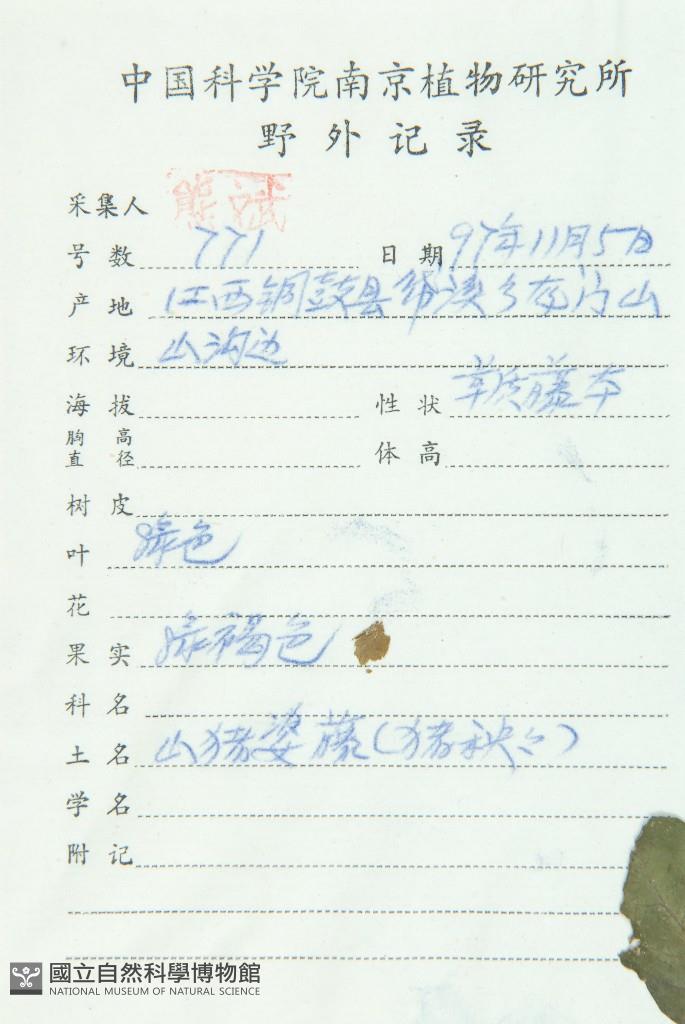 中国科学院南京植物研究所
野外记录
采集人 熊斌
号数 771 日期 97年11月5日
产地 江西铜鼓县 乡龙门山
环境 山沟边
海拔 性状 草质藤本
胸高直径 体高
树皮
叶 绿色
花
果实 绿褐色
科名
土名 山猪婆藤(猪秧々)
学名
附记
國立自然科學博物館
NATIONAL MUSEUM OF NATURAL SCIENCE